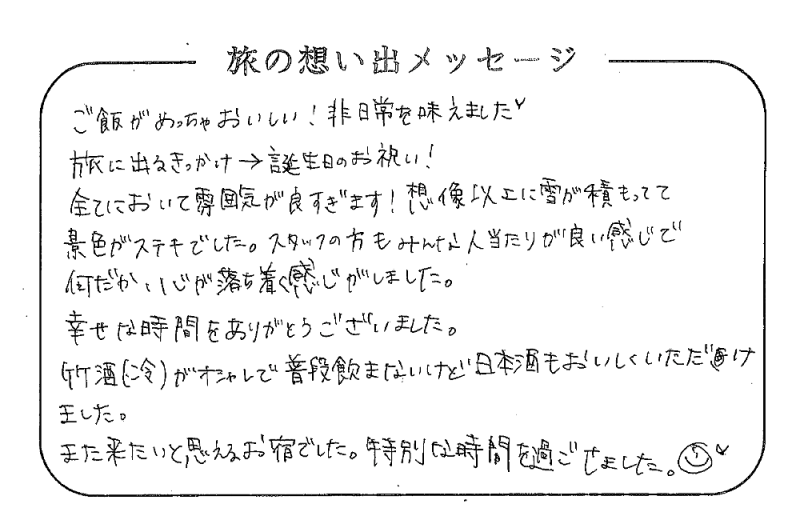 旅の想い出メッセージ
ご飯がめっちゃおいしい!非日常を味えました
旅に出るきっかけ→誕生日のお祝い!
全てにおいて雰囲気が良すぎます!想像以上に雪が積もってて
景色がステキでした。スタッフの方もみんな人当たりが良い感じで
何だか心が落ち着く感じがしました。
幸せな時間をありがとうございました。
竹酒(冷)がオシャレで普段飲まないけど日本酒もおいしくいただけ
ました。
また来たいと思えるお宿でした。特別な時間を過ごせました。